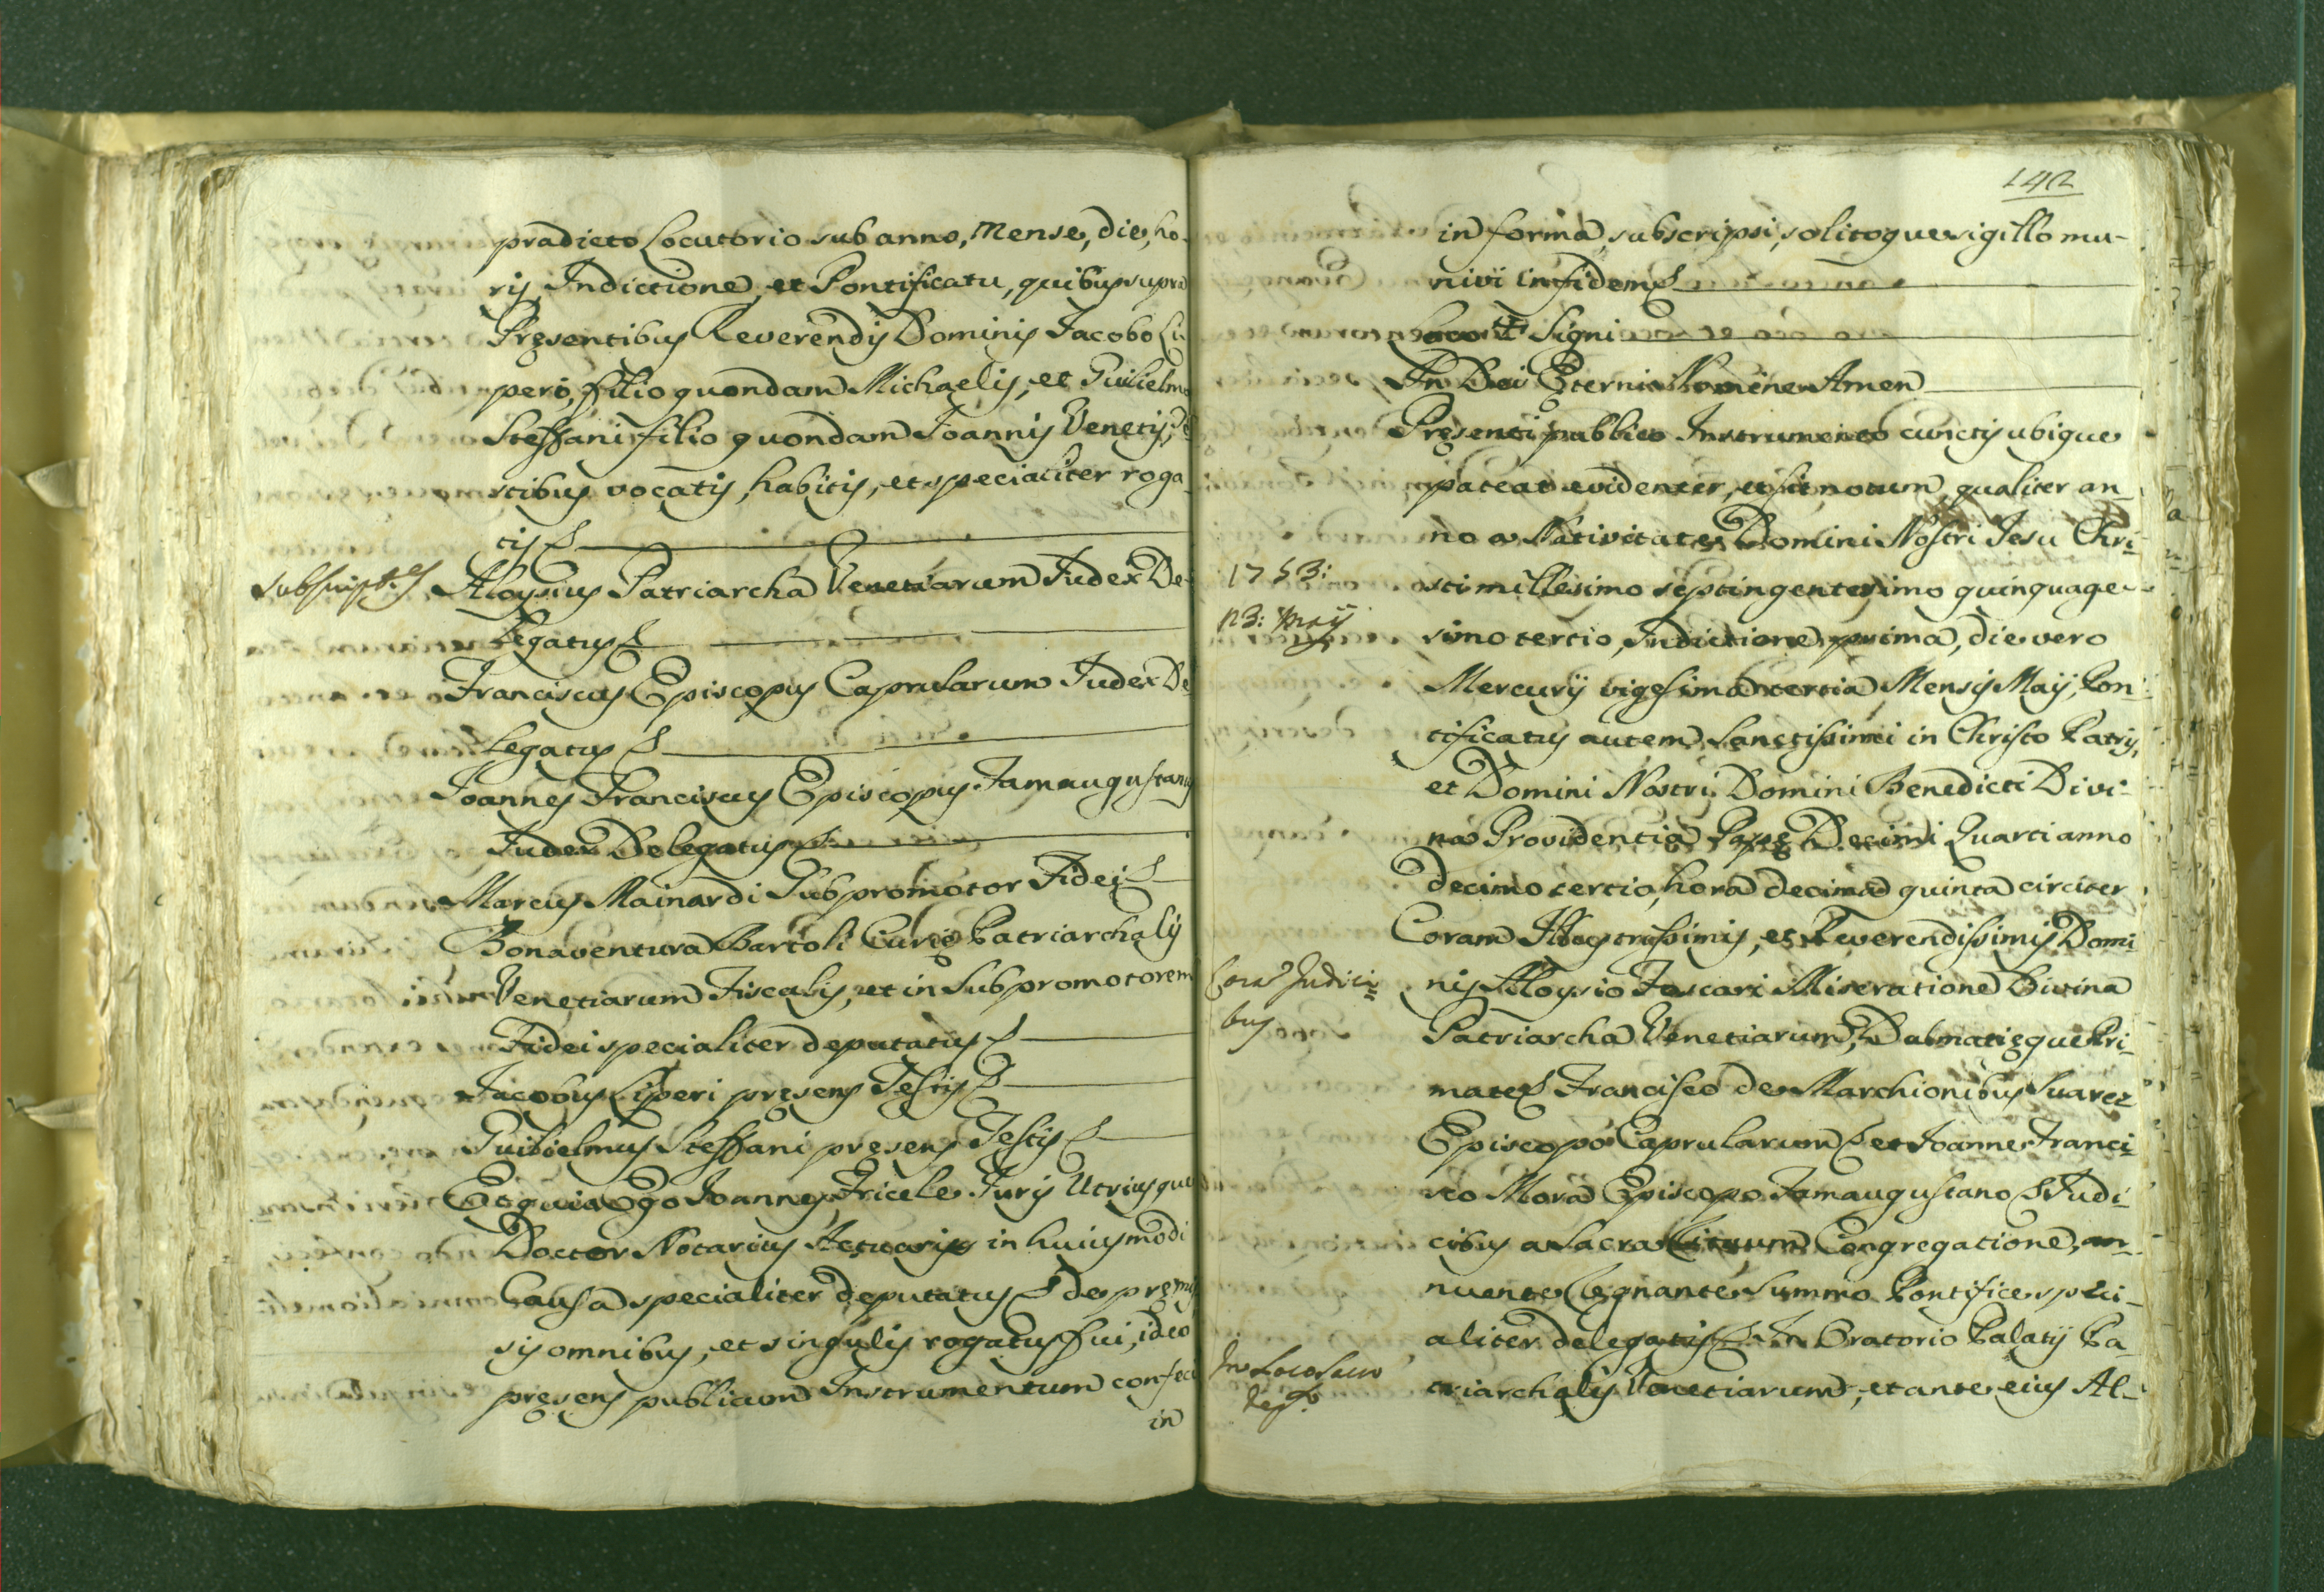 pradicto Locutorio sub anno, Mense, die, ho-
rij Indictione, et Pontificatu, quibus supra
Pręsentibus Reverendis Dominis Jacobo Li
peri, filio quondam Michaelis, et Guilielmo
Steffani filio quondam Joannis Venetis, Te
stibus vocatis, habitis, et specialiter roga-
tis
Aloysius Patriarcha Venetiarum Judex De-
legatus
Franciscus Episcopus Caprularum Judex De
legatus
Joannes Franciscus Episcopus Famaugustanus
Judex Delegatus
Marcus Mainardi Subpromotor Fidei
Bonaventura Bartoli Curię Patriarchalis
Venetiarum Fiscalis, et in Subpromotorem
Fidei specialiter deputatus
Jacobus Liperi pręsens Testis
Guilielmus Steffani pręsens Testis
Et quia Ego Joannes Fricele Juris Utriusque
Doctor Notarius Actuarius in huiusmodi
Causa specialiter deputatus de pręmis
sis omnibus, et singulis rogatus fui, ideo
pręsens publicum Instrumentum confeci
in
142
in forma, subscripsi, solitoque sigillo mu-
nivi in fidem
Loco + Signi
In Dei Ęterni Nomine Amen
Pręsenti publico Instrumento cunctis ubique
pateat evidenter, et sit notum, qualiter an-
no a Nativitate Domini Nostri Jesu Chri-
1753:
sti millesimo septingentesimo quinquage-
23: Maij
simo tertio, Indictione prima, die vero
Mercurij vigesima tertia Mensis Maij, Pon-
tificatus autem Sanctissimi in Christo Patris,
et Domini Nostri Domini Benedicti Divi-
na Providentia Papę Decimi Quarti anno
decimo tertio, hora decima quinta circiter
Coram Illustrissimis, et Reverendissimis Domi-
Cora Judici=
nis Aloysio Foscari Miseratione Divina
bus
Patriarcha Venetiarum, Dalmatięque Pri-
mate Francisco de Marchionibus Suarez
Episcopo Caprularum et Joanne Franci-
sco Mora Episcopo Famaugustano Judi-
cibus a Sacra Rituum Congregatione, an-
nuente Regnante Summo Pontifice speci-
aliter delegatis In Oratorio Palatij Pa-
In Loco Sacro
triarchalis Venetiarum, et ante eius Al-